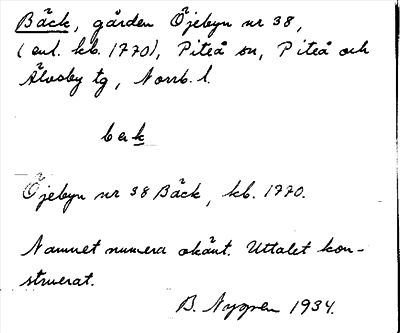 Bäck, gården Öjebyn nr 38,
(enl. kb. 1770), Piteå sn, Piteå och
Älvsby tg, Norrb. l.
bek
Öjebyn nr 38 Bäck, kb. 1770.
Namnet numera okänt. Uttalet kon-
struerat.
B. Nygren 1934.